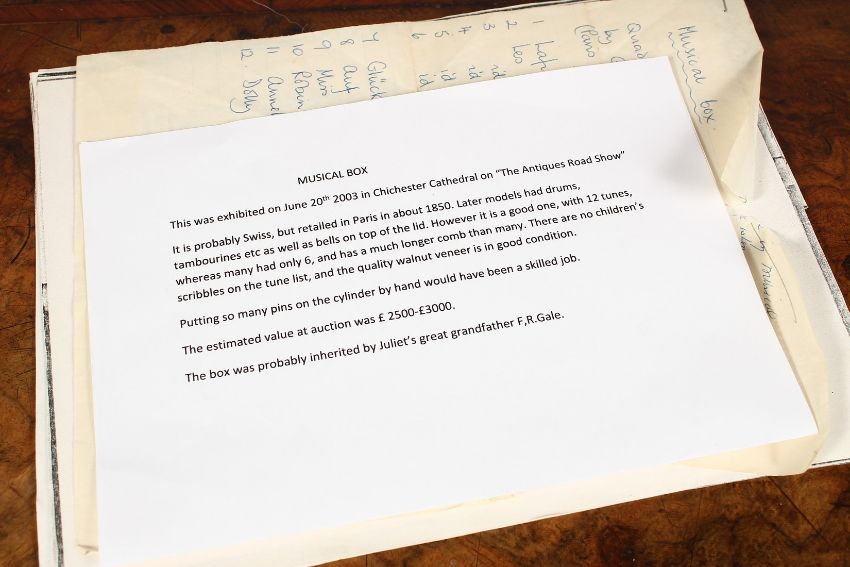 MUSICAL BOX
This was exhibited on June 20th 2003 in Chichester Cathedral on "The Antiques Road Show"
It is probably Swiss, but retailed in Paris in about 1850. Later models had drums,
tambourines etc as well as bells on top of the lid. However it is a good one, with 12 tunes,
whereas many had only 6, and has a much longer comb than many. There are no children's
scribbles on the tune list, and the quality walnut veneer is in good condition.
Putting so many pins on the cylinder by hand would have been a skilled job.
The estimated value at auction was £ 2500-£3000.
The box was probably inherited by Juliet's great grandfather F,R.Gale.
Musical box
Quad
by
1
2 Les
3 id
4 id
5 id
6 id
7 Glück
8 Auf
9
10 Robin
11 Anne
12. Dolly